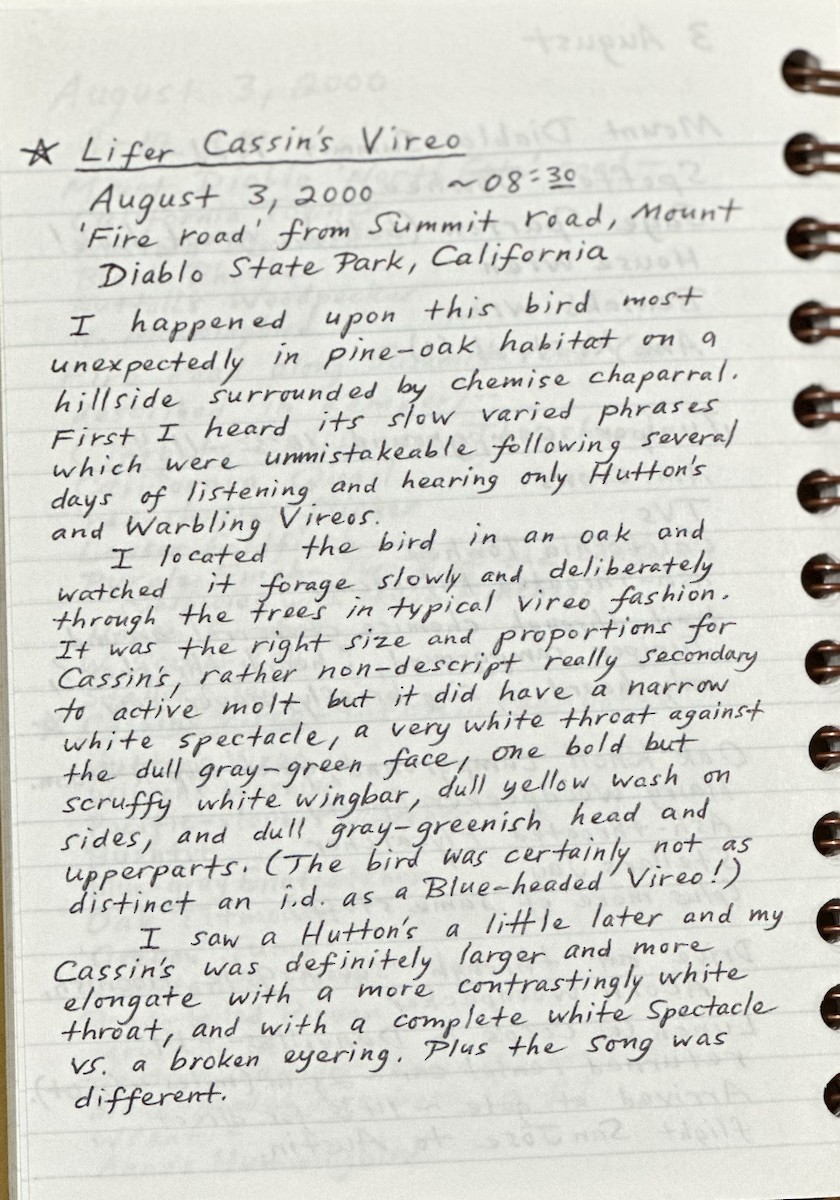 ☆ Lifer Cassin's Vireo
August 3, 2000 ~08:30
'Fire road' from Summit road, Mount
Diablo State Park, California
I happened upon this bird most
unexpectedly in pine-oak habitat on a
hillside surrounded by chemise chaparral.
First I heard its slow varied phrases
which were unmistakeable following several
days of listening and hearing only Hutton's
and Warbling Vireos.
I located the bird in an oak and
watched it forage slowly and deliberately
through the trees in typical vireo fashion.
It was the right size and proportions for
Cassin's, rather non-descript really secondary
to active molt but it did have a narrow
white spectacle, a very white throat against
the dull gray-green face, one bold but
scruffy white wingbar, dull yellow wash on
sides, and dull gray-greenish head and
upperparts. (The bird was certainly not as
distinct an i.d. as a Blue-headed Vireo!)
I saw a Hutton's a little later and my
Cassin's was definitely larger and more
elongate with a more contrastingly white
throat, and with a complete white Spectacle
vs. a broken eyering. Plus the song was
different.